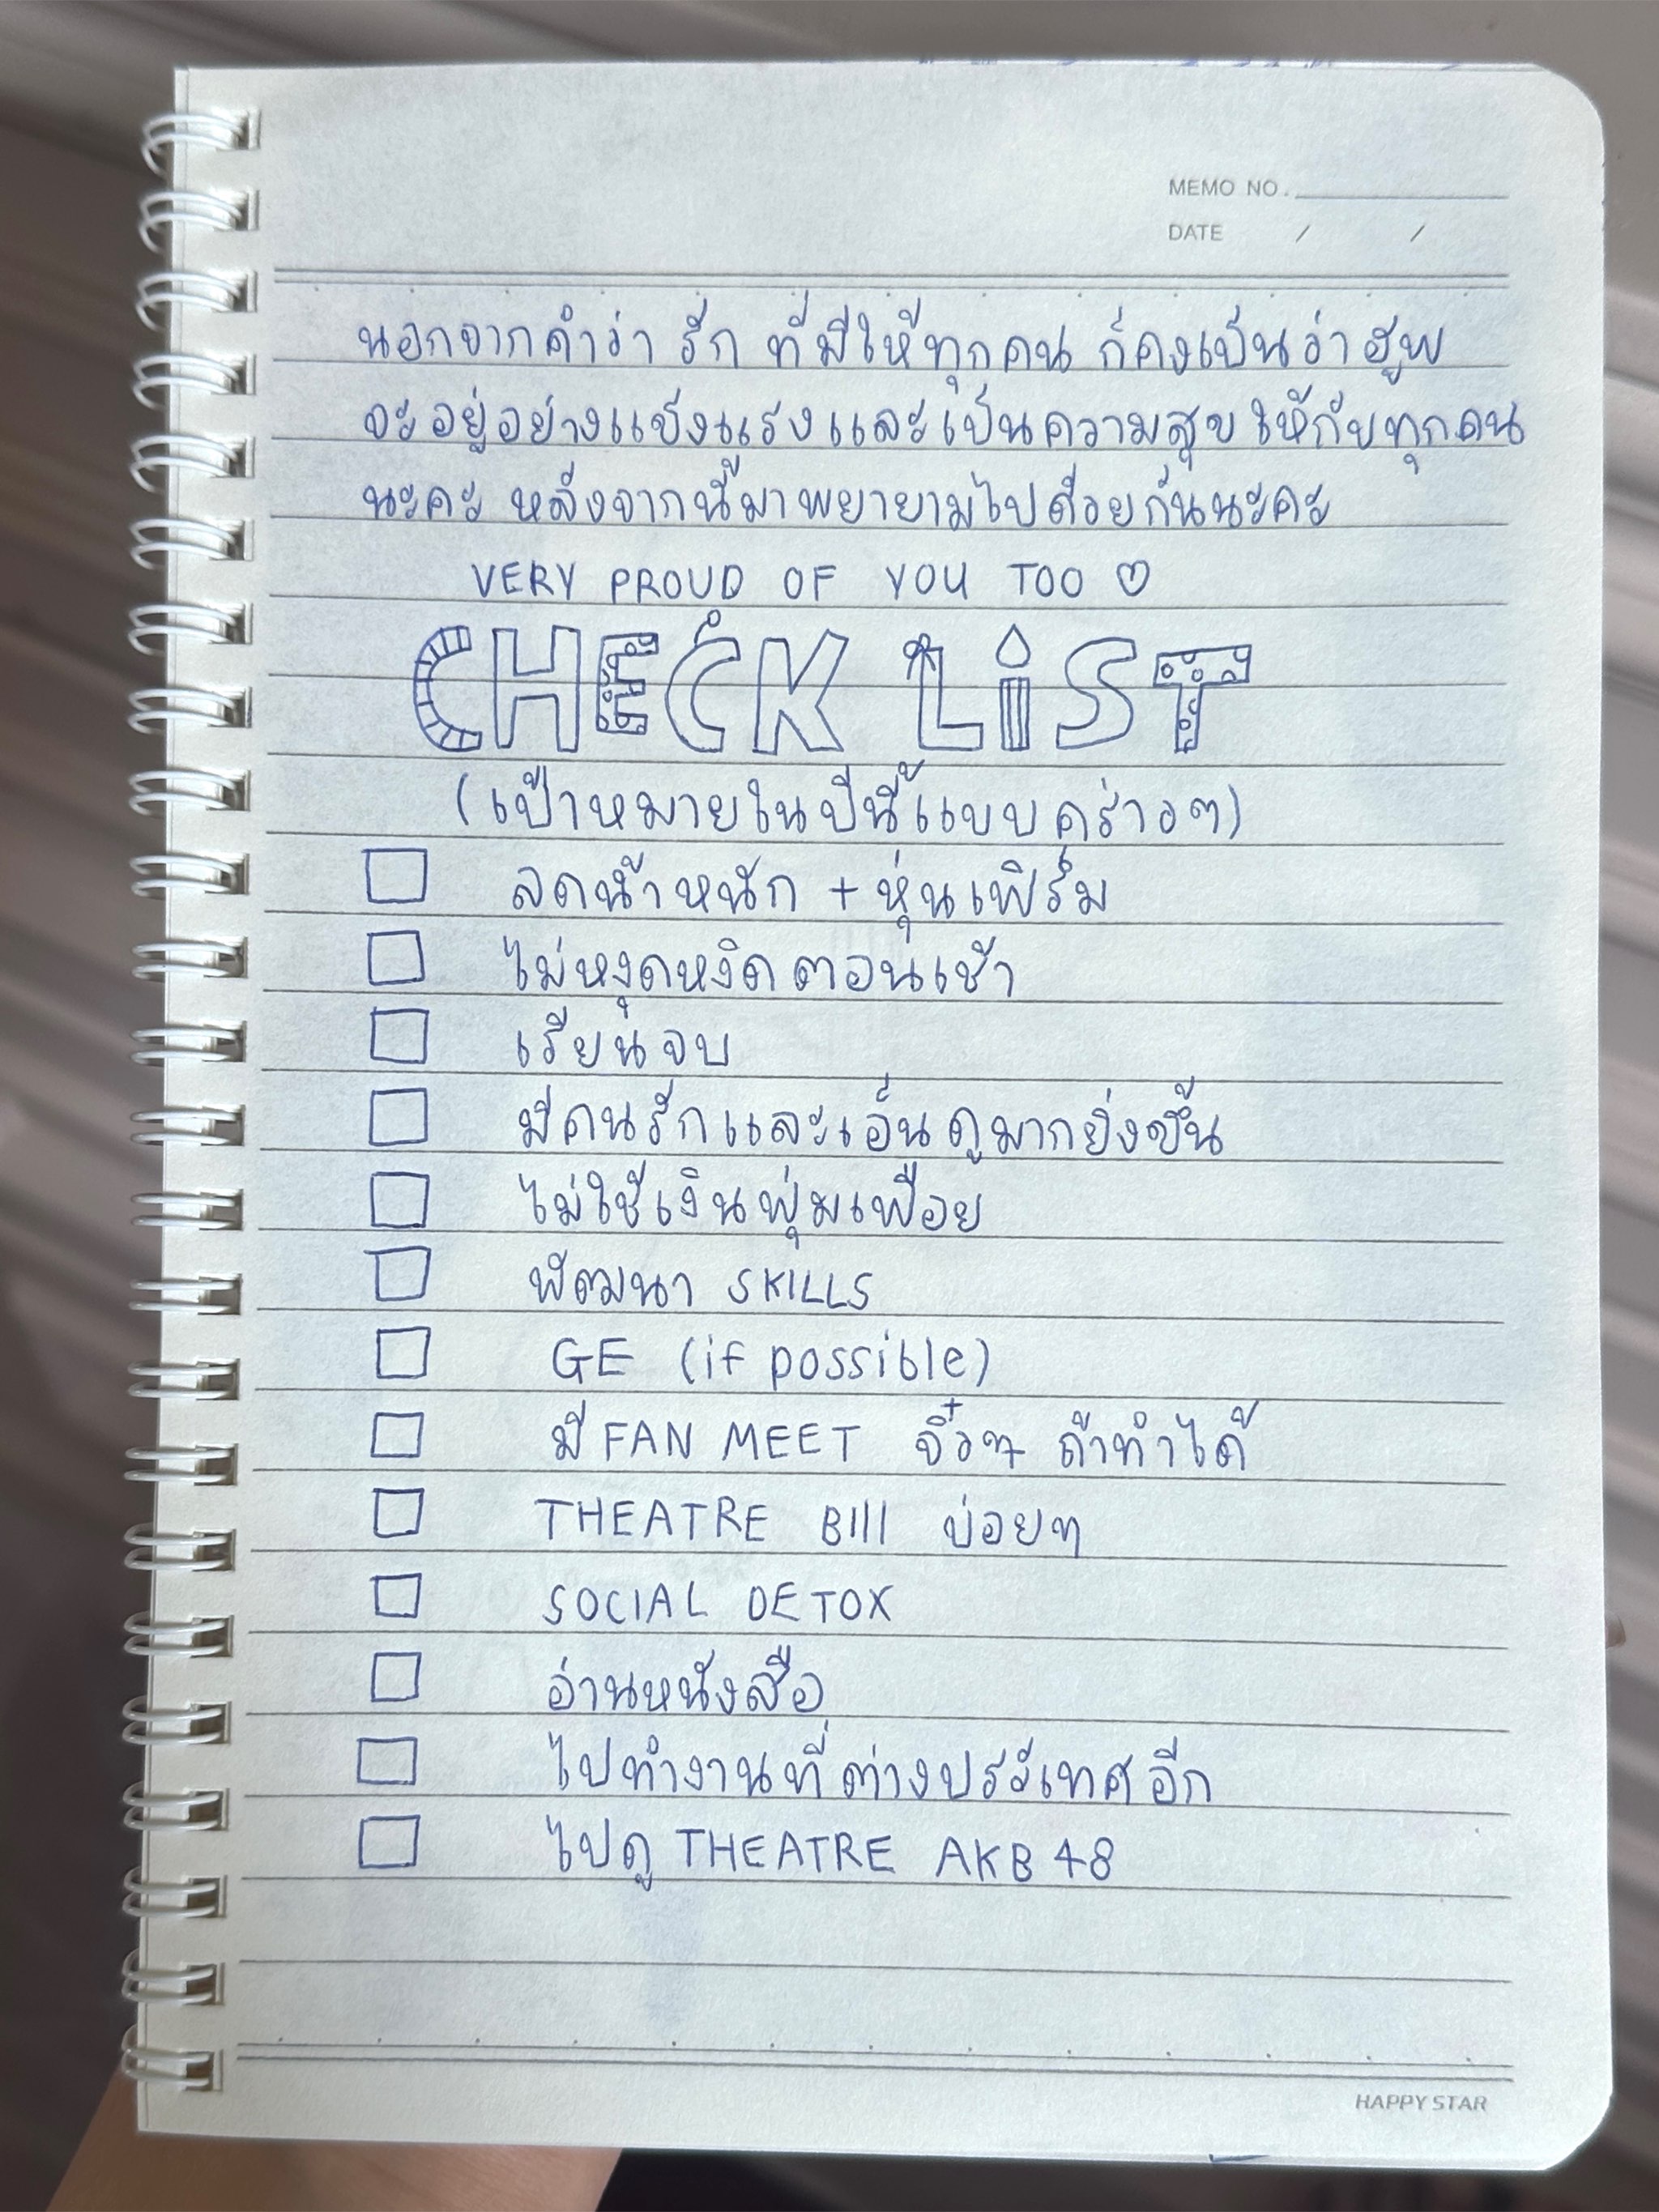 MEMO NO.
DATE / /
นอกจากคำว่า รัก ที่มีให้ทุกคน ก็คงเป็นว่าฮูพ
จะอยู่อย่างแข็งแรงและเป็นความสุขให้กับทุกคน
นะคะ หลังจากนี้มาพยายามไปด้วยกันนะคะ
VERY PROUD OF YOU TOO ♡
CHECK LiST
(เป้าหมายในปีนี้แบบคร่าวๆ)
☐ ลดน้ำหนัก + หุ่นเฟิร์ม
☐ ไม่หงุดหงิดตอนเช้า
☐ เรียนจบ
☐ มีคนรักและเอ็นดูมากยิ่งขึ้น
☐ ไม่ใช้เงินฟุ่มเฟือย
☐ พัฒนา SKILLS
☐ GE (if possible)
☐ มี FAN MEET จิ๋วๆ ถ้าทำได้
☐ THEATRE BIII บ่อยๆ
☐ SOCIAL DETOX
☐ อ่านหนังสือ
☐ ไปทำงานที่ต่างประเทศอีก
☐ ไปดู THEATRE AKB48
HAPPY STAR